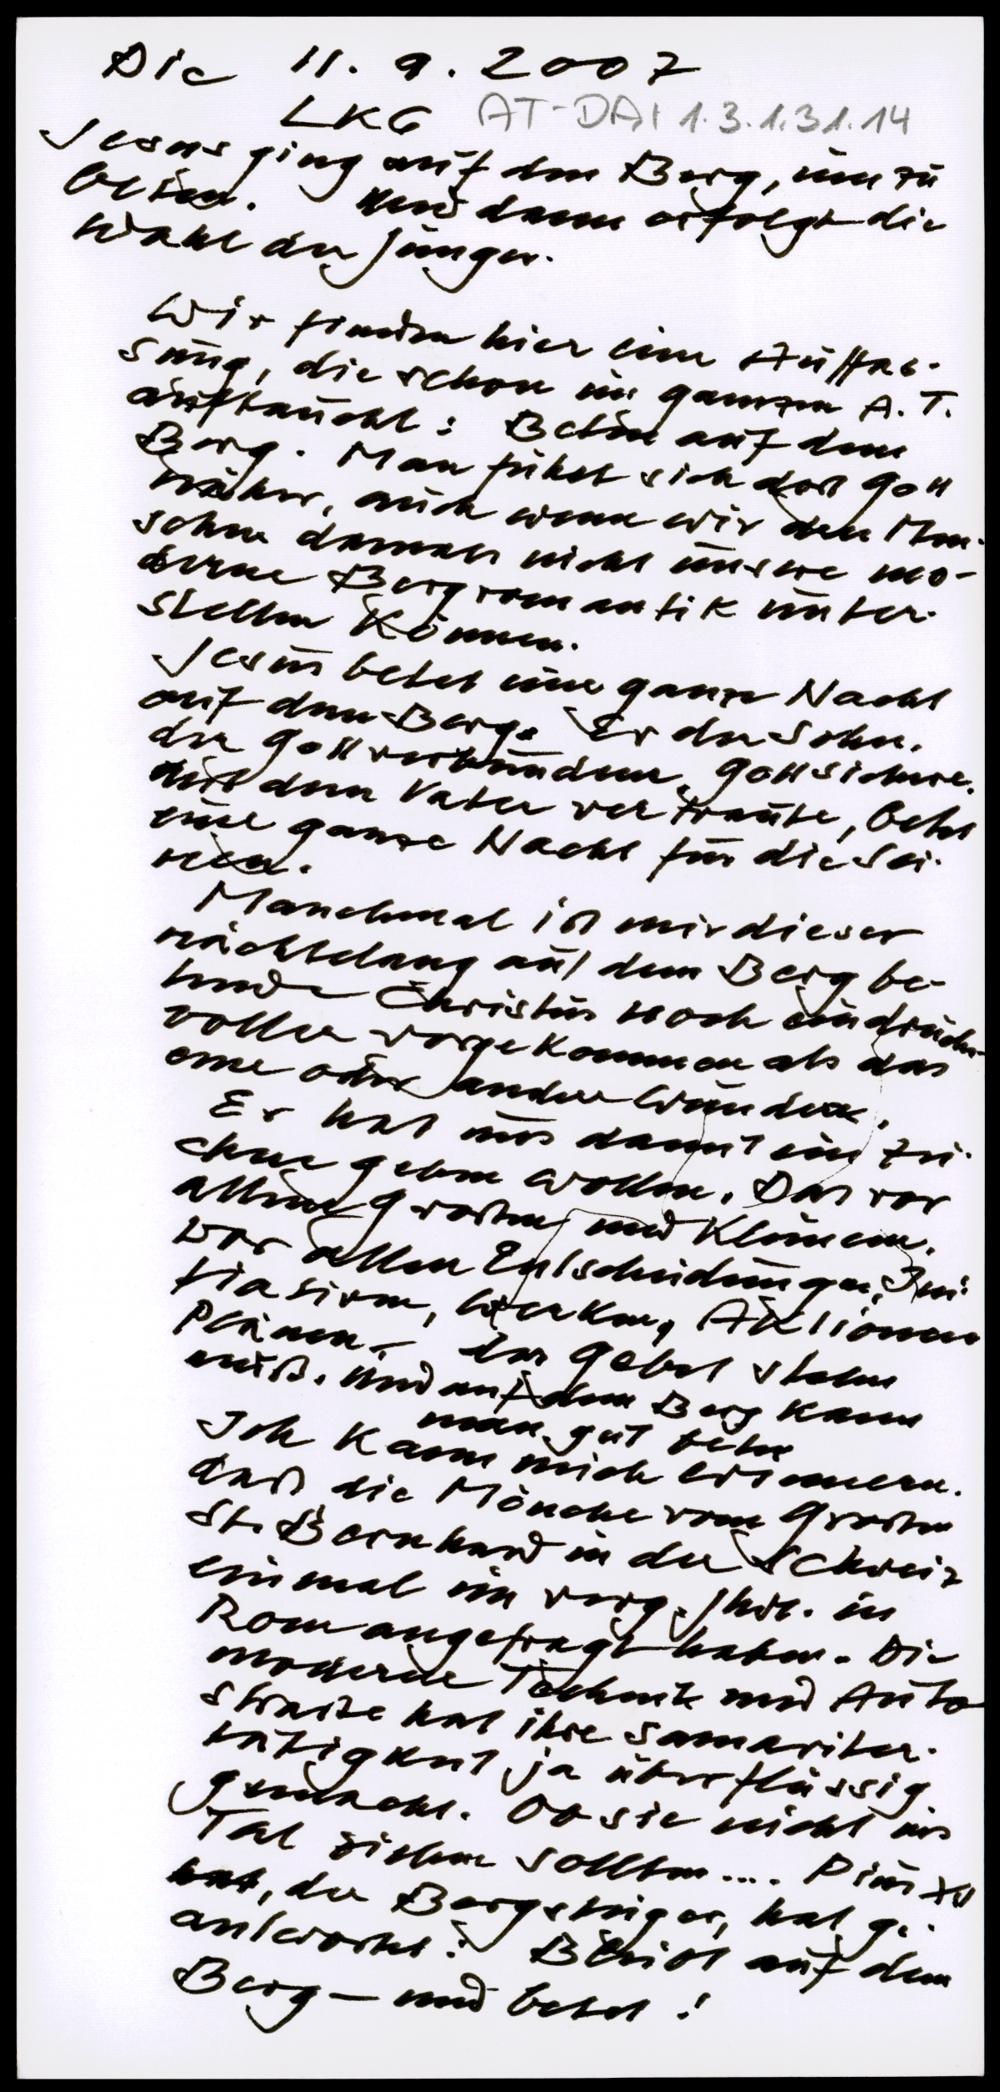 Die 11. 9. 2007
LKG AT-DAI 1.3.1.31.14
Jesus ging auf den Berg, um zu
beten. Und dann erfolgt die
Wahl der Jünger.
Wir finden hier eine Auffas-
sung, die schon im ganzen A. T.
auftaucht: Beten auf dem
Berg. Man fühlt sich dort Gott
näher, auch wenn wir den Men-
schen damals nicht unsere mo-
derne Bergromantik unter-
stellen können.
Jesus betet eine ganze Nacht
auf dem Berg. Er der Sohn,
der Gottverbundene, Gottsichere,
mit dem Vater vertraute, betet
eine ganze Nacht für die Sei-
nen.
Manchmal ist mir dieser
nächtelang auf dem Berg be-
tende Christus noch eindrucks-
voller vorgekommen als das
eine oder andere Wunder.
Er hat uns damit ein Zei-
chen geben wollen. Das vor
allem Großen und Kleinen,
vor allen Entscheidungen, Ini-
tiativen, Werken, Aktionen
Plänen – das Gebet stehen
muß. Und auf dem Berg kann
man gut beten
Ich kann mich erinnern,
daß die Mönche vom Großen
St. Bernhard in der Schweiz
einmal im vorg. Jhrh. in
Rom angefragt haben. Die
moderne Technik und Auto
straße hat ihre Samariter-
tätigkeit ja überflüssig
gemacht. Ob sie nicht ins
Tal ziehen sollten.... Pius XI
hat, der Bergsteiger, hat ge-
antwortet: Bleibt auf dem
Berg – und betet!